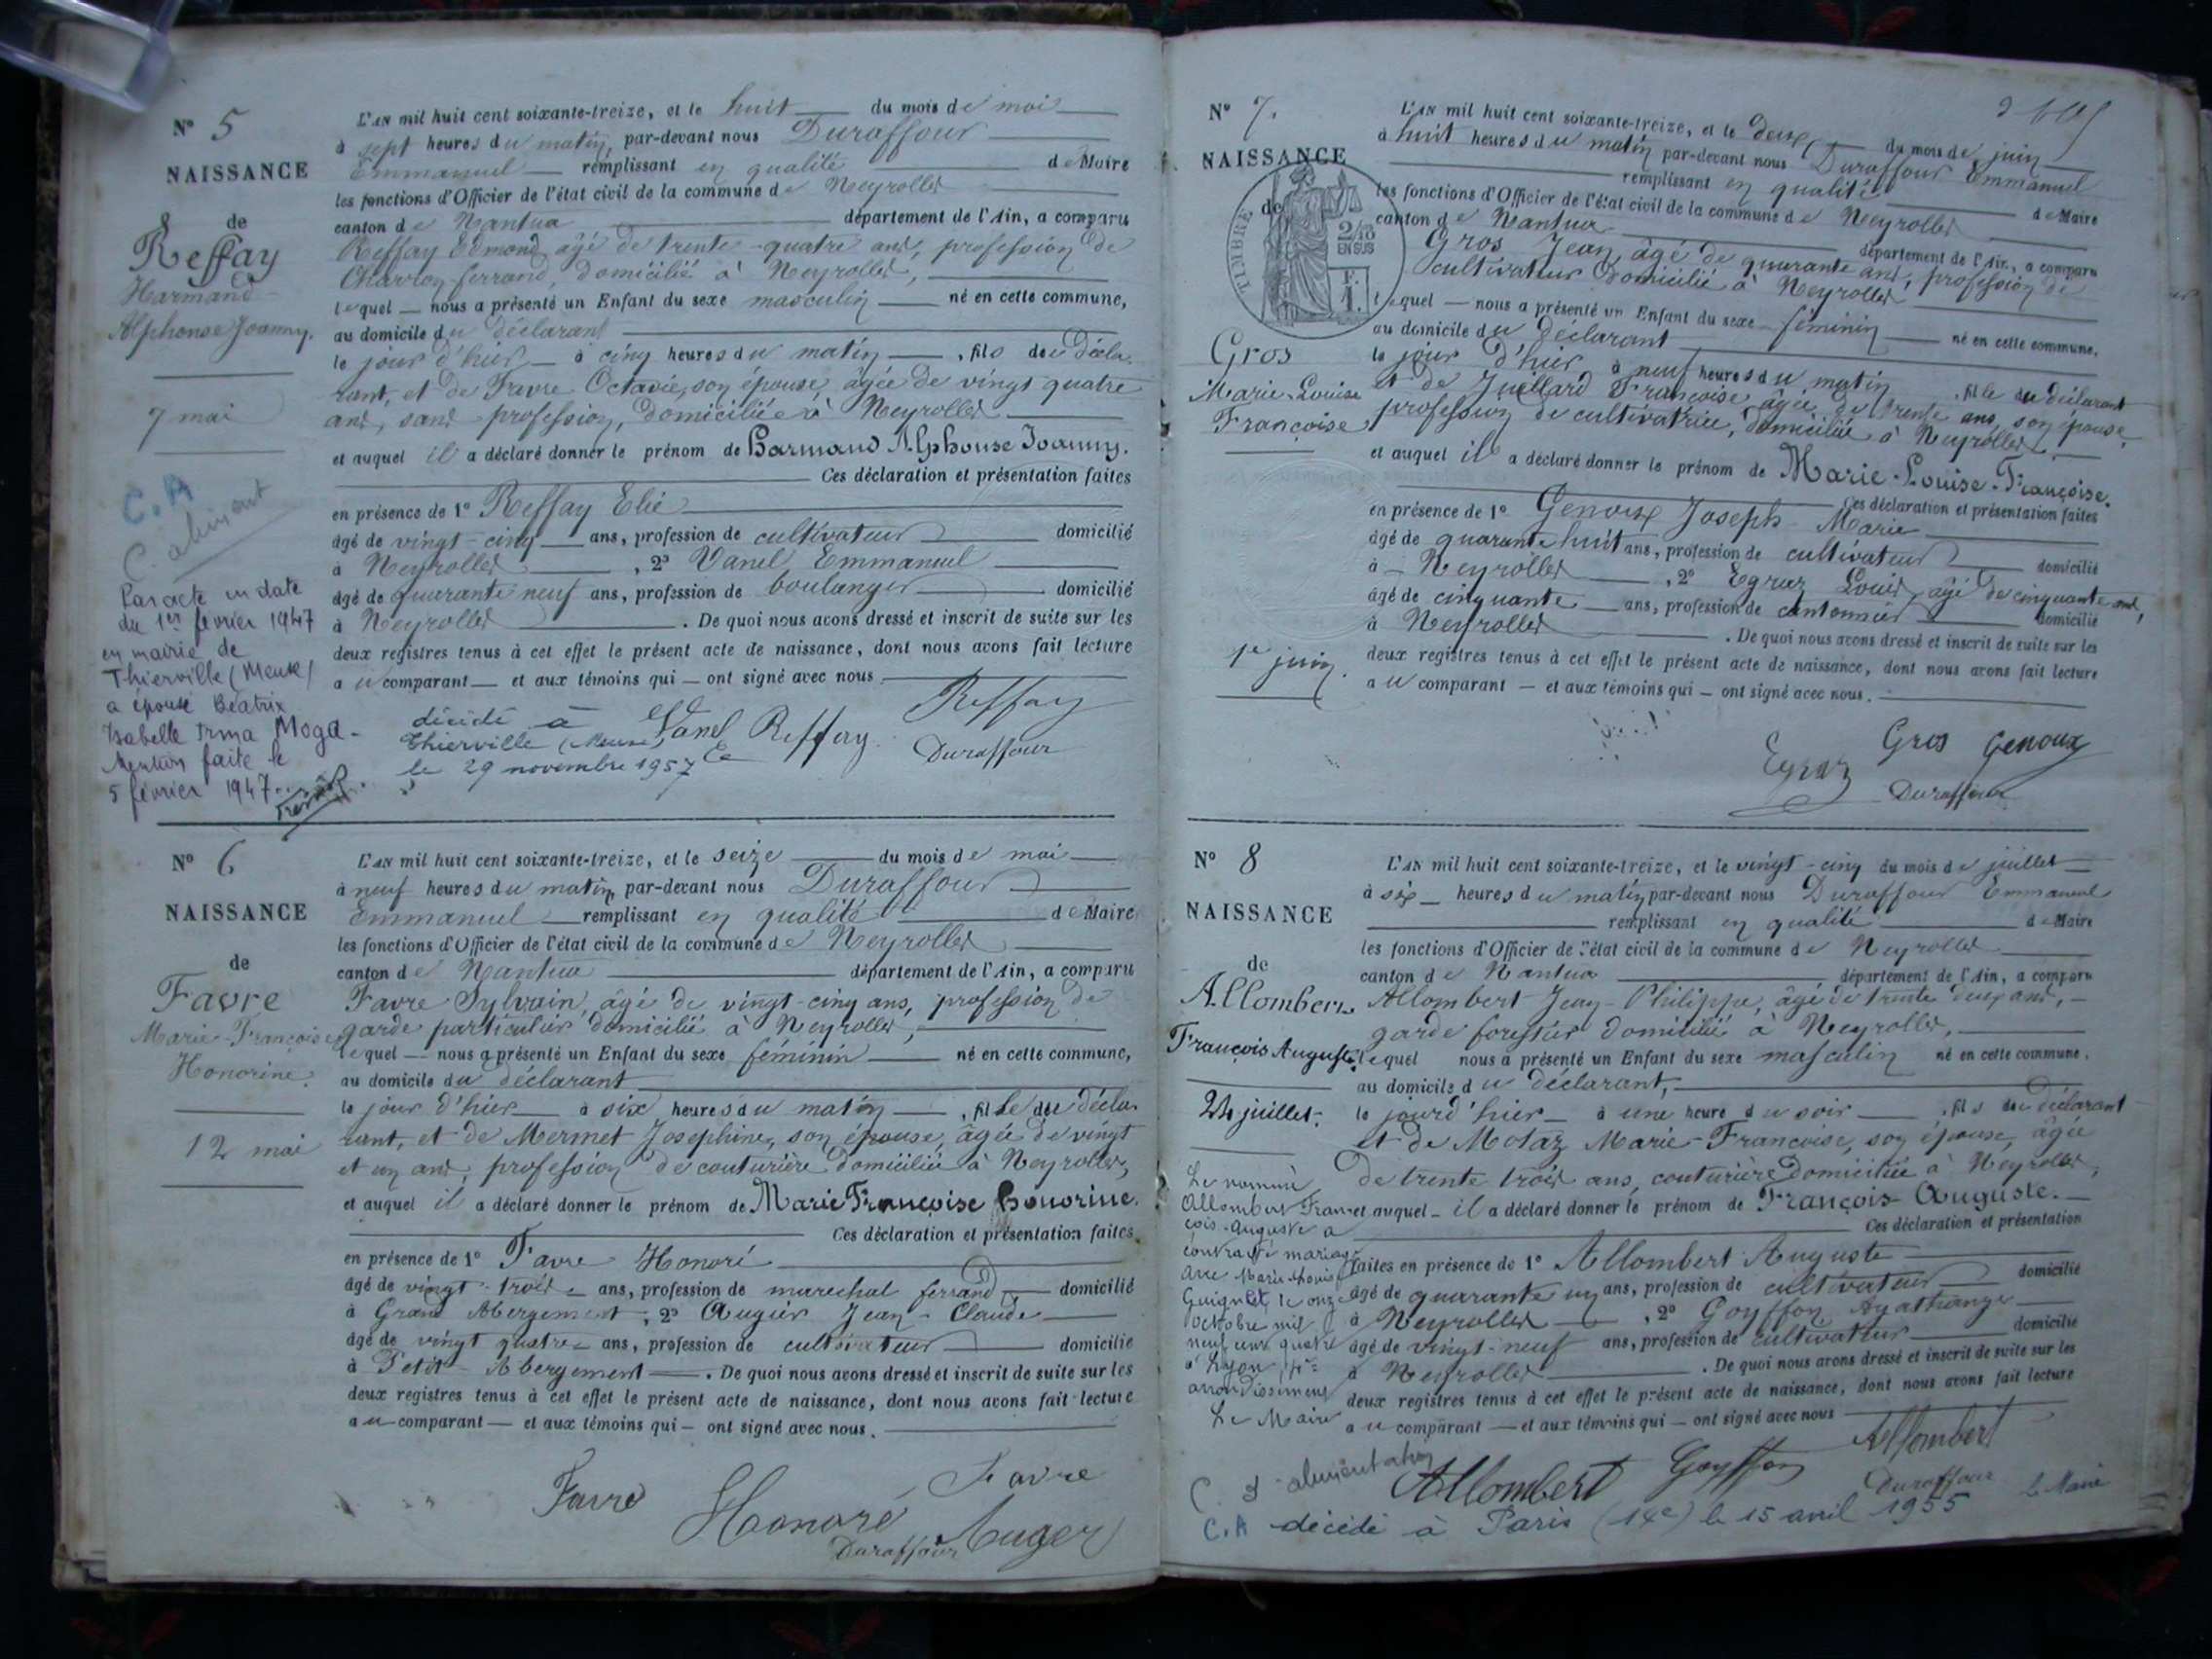 N° 5
NAISSANCE
de
Reffay
Harmand
Alphonse Joanny.
7 mai
C. A
C. aliment
Par acte en date
du 1er février 1947
en mairie de
Thierville (Meuse)
a épousé Béatrix
Isabelle Irma Moga
Mention faite le
5 février 1947
L'AN mil huit cent soixante-treize, et le huit du mois de mai
à sept heures du matin, par-devant nous Duraffour
Emmanuel remplissant en qualité de Maire
les fonctions d'Officier de l'état civil de la commune de Neyrolles
canton de Nantua département de l'Ain, a comparu
Reffay Edmond, âgé de trente-quatre ans, profession de
Charron ferrand, domicilié à Neyrolles,
lequel nous a présenté un Enfant du sexe masculin né en cette commune,
au domicile du déclarant
le jour d'hier à cinq heures du matin, fils du décla-
rant, et de Favre Octavie, son épouse, âgée de vingt quatre
ans, sans profession, domiciliée à Neyrolles
et auquel il a déclaré donner le prénom de Harmand Alphonse Joanny.
Ces déclaration et présentation faites
en présence de 1° Reffay Elie
âgé de vingt-cinq ans, profession de cultivateur domicilié
à Neyrolles, 2° Vanel Emmanuel
âgé de quarante neuf ans, profession de boulanger domicilié
à Neyrolles. De quoi nous avons dressé et inscrit de suite sur les
deux registres tenus à cet effet le présent acte de naissance, dont nous avons fait lecture
au comparant et aux témoins qui ont signé avec nous.
décidé à
Thierville (Meuse)
le 29 novembre 1957
Vanel Reffay Reffay
Duraffour
N° 6
NAISSANCE
de
Favre
Marie-Françoise
Honorine.
12 mai
L'AN mil huit cent soixante-treize, et le seize du mois de mai
à neuf heures du matin, par-devant nous Duraffour
Emmanuel remplissant en qualité de Maire
les fonctions d'Officier de l'état civil de la commune de Neyrolles
canton de Nantua département de l'Ain, a comparu
Favre Sylvain, âgé de vingt-cinq ans, profession de
garde particulier domicilié à Neyrolles,
lequel nous a présenté un Enfant du sexe féminin né en cette commune,
au domicile du déclarant
le jour d'hier à six heures du matin, fille du décla-
rant, et de Mermet Josephine, son épouse, âgée de vingt
et un ans, profession de couturière domiciliée à Neyrolles,
et auquel il a déclaré donner le prénom de Marie Françoise Honorine.
Ces déclaration et présentation faites
en présence de 1° Favre Honoré
âgé de vingt-trois ans, profession de marechal ferrand domicilié
à Grand Abergement, 2° Augier Jean-Claude
âgé de vingt quatre ans, profession de cultivateur domicilié
à Petit Abergement. De quoi nous avons dressé et inscrit de suite sur les
deux registres tenus à cet effet le présent acte de naissance, dont nous avons fait lecture
au comparant et aux témoins qui ont signé avec nous.
Favre Honoré Favre
Duraffour Auger
N° 7.
NAISSANCE
de
TIMBRE
2/10
EN SUS
F.
1.
Gros
Marie-Louise
Françoise
1er juin.
L'AN mil huit cent soixante-treize, et le deux du mois de juin
à huit heures du matin par-devant nous Duraffour Emmanuel
remplissant en qualité de Maire
les fonctions d'Officier de l'état civil de la commune de Neyrolles
canton de Nantua département de l'Ain, a comparu
Gros Jean, âgé de quarante ans, profession de
cultivateur domicilié à Neyrolles
lequel nous a présenté un Enfant du sexe féminin né en cette commune,
au domicile du déclarant
le jour d'hier à neuf heures du matin, fille du déclarant
et de Juillard Françoise âgée de trente ans, son épouse,
profession de cultivatrice, domiciliée à Neyrolles,
et auquel il a déclaré donner le prénom de Marie-Louise-Françoise.
Ces déclaration et présentation faites
en présence de 1° Genoux Joseph-Marie
âgé de quarante huit ans, profession de cultivateur domicilié
à Neyrolles, 2° Egraz Louis, âgé de cinquante ans,
âgé de cinquante ans, profession de cantonnier domicilié
à Neyrolles. De quoi nous avons dressé et inscrit de suite sur les
deux registres tenus à cet effet le présent acte de naissance, dont nous avons fait lecture
au comparant et aux témoins qui ont signé avec nous.
Egraz Gros Genoux
Duraffour
N° 8
NAISSANCE
de
Allombert
François Auguste.
24 juillet.
Le nommé
Allombert Fran-
çois-Auguste a
contracté mariage
avec Marie Louise
Guignet, le onze
octobre mil
neuf cent quatre
à Lyon, 4e
arrondissement
Le Maire
L'AN mil huit cent soixante-treize, et le vingt-cinq du mois de juillet
à six heures du matin par-devant nous Duraffour Emmanuel
remplissant en qualité de Maire
les fonctions d'Officier de l'état civil de la commune de Neyrolles
canton de Nantua département de l'Ain, a comparu
Allombert Jean-Philippe, âgé de trente deux ans,
garde forestier domicilié à Neyrolles,
lequel nous a présenté un Enfant du sexe masculin né en cette commune,
au domicile du déclarant,
le jour d'hier à une heure du soir, fils du déclarant
et de Molaz Marie-Françoise, son épouse, âgée
de trente trois ans, couturière domiciliée à Neyrolles,
et auquel il a déclaré donner le prénom de François Auguste.
Ces déclaration et présentation
faites en présence de 1° Allombert Auguste
âgé de quarante un ans, profession de cultivateur domicilié
à Neyrolles, 2° Goyffon Agathange
âgé de vingt-neuf ans, profession de cultivateur domicilié
à Neyrolles. De quoi nous avons dressé et inscrit de suite sur les
deux registres tenus à cet effet le présent acte de naissance, dont nous avons fait lecture
au comparant et aux témoins qui ont signé avec nous
Allombert Goyffon Allombert
Duraffour le Maire
C. d'alimentation
C.A décédé à Paris (14e) le 15 avril 1955